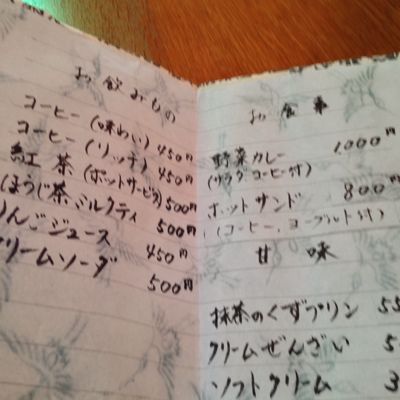 お飲みもの
コーヒー(味わい) 450円
コーヒー(リッチ) 450円
紅茶(ポットサービス) 500円
ほうじ茶ミルクティ 500円
んごジュース 450円
リームソーダ 500円
お食事
野菜カレー 1,000円
(サラダ コーヒー付)
ホットサンド 800円
(コーヒー、ヨーグルト付)
甘味
抹茶のくずプリン 55
クリームぜんざい 5
ソフトクリーム 3